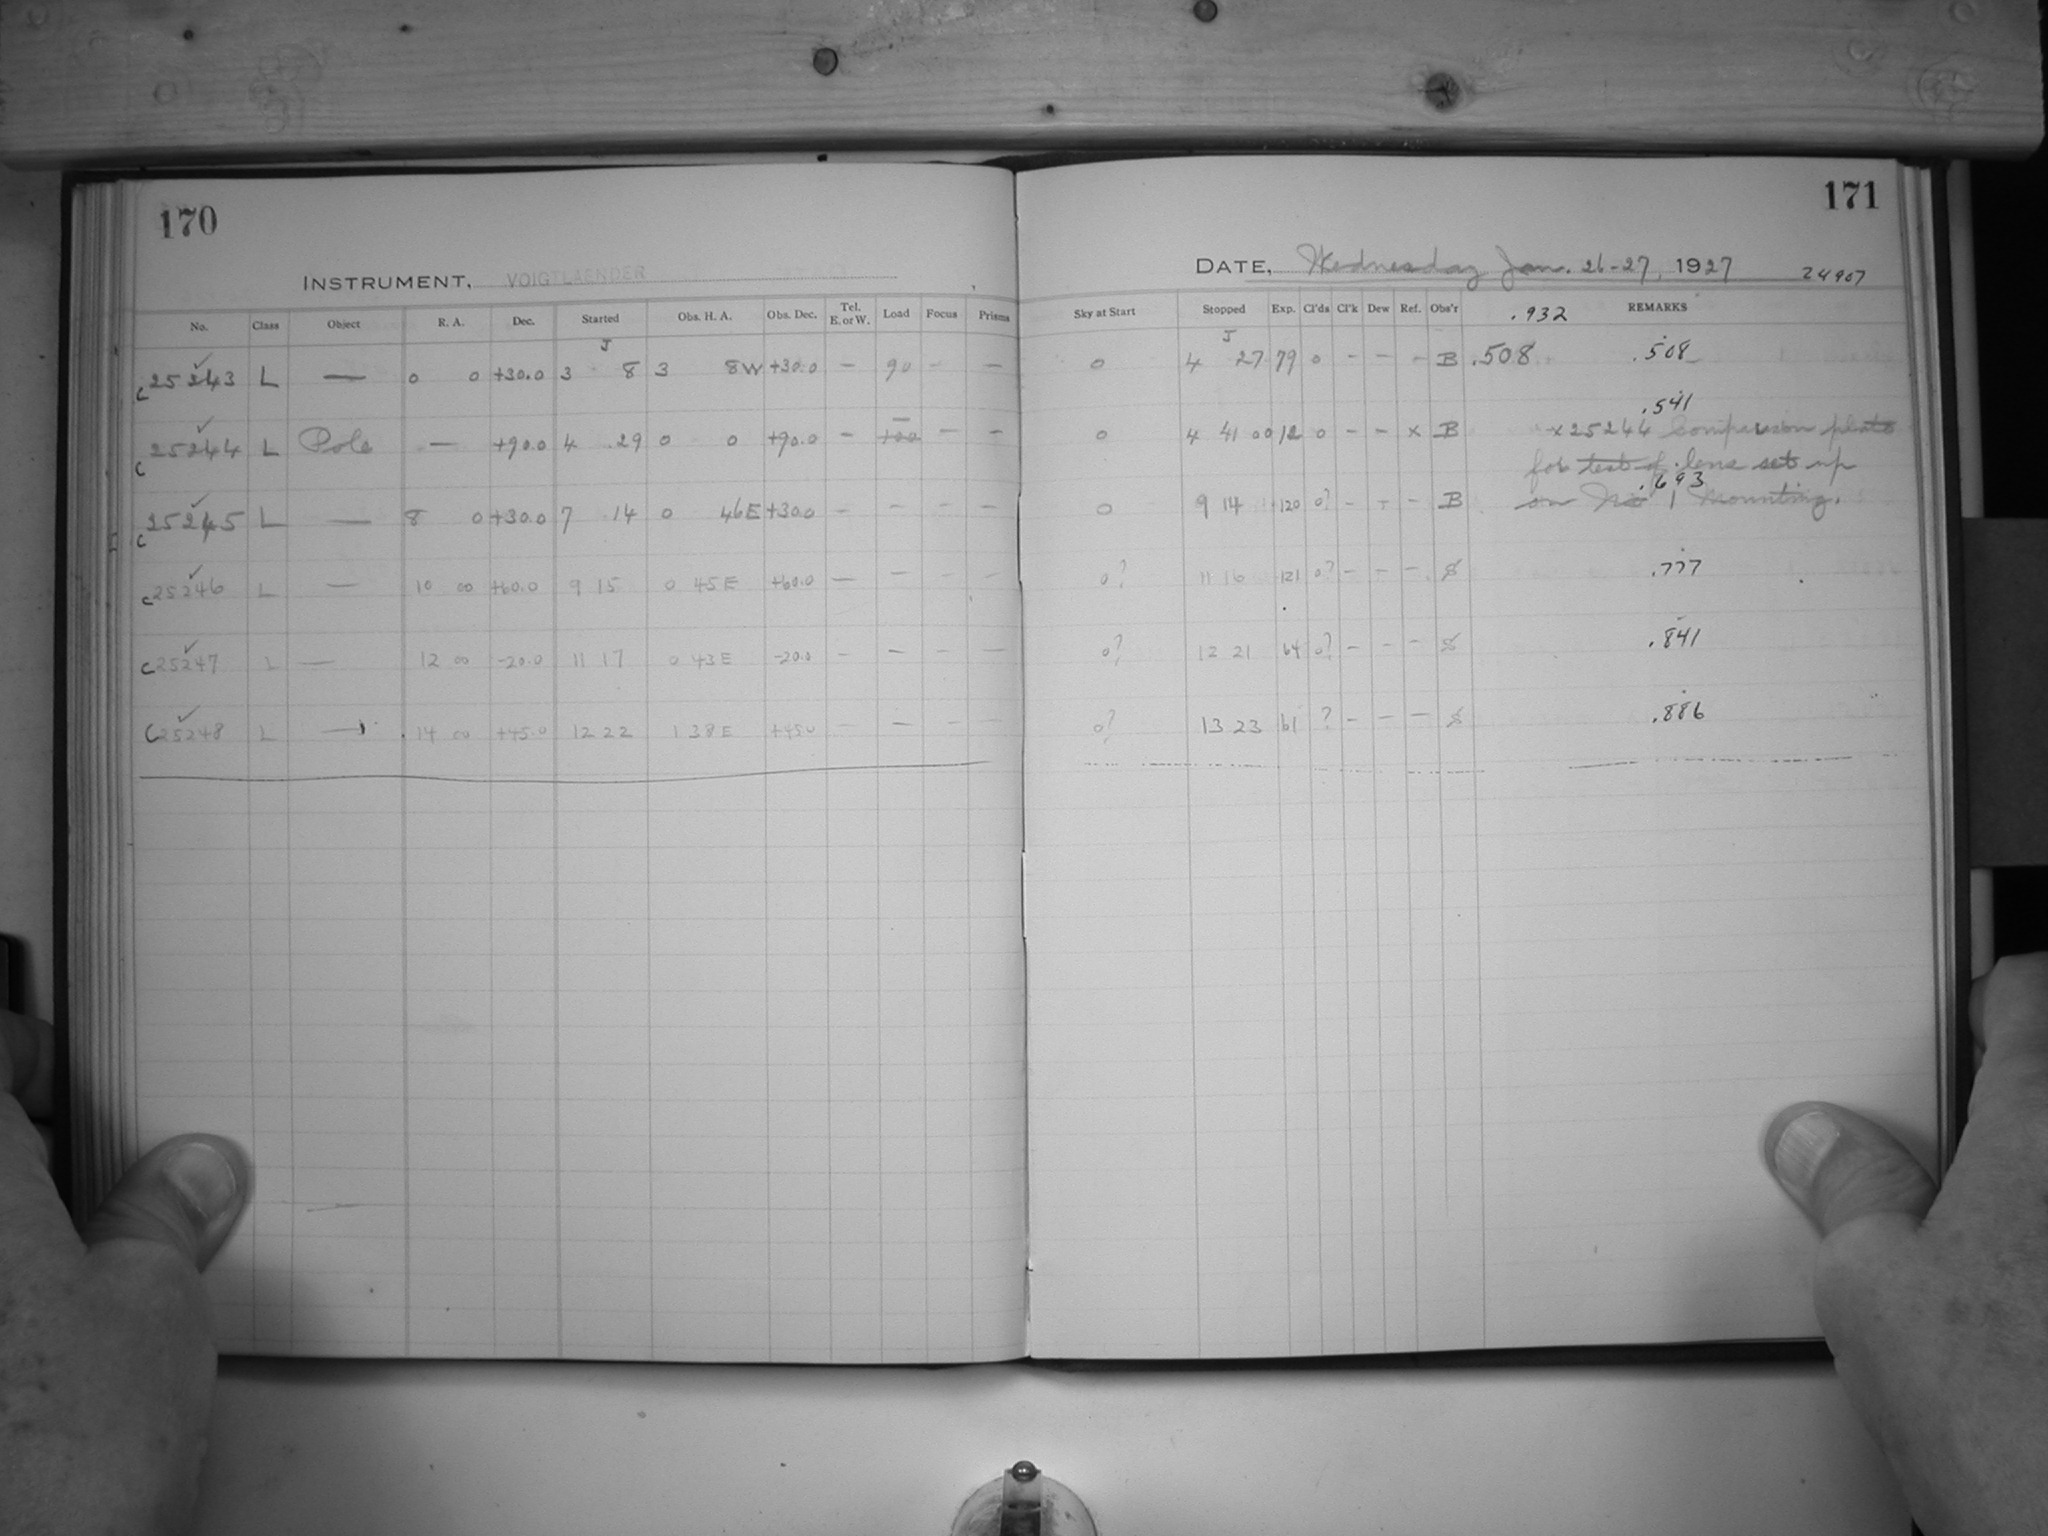 170
INSTRUMENT, VOIGTLAENDER
No. Class Object R. A. Dec. Started Obs. H. A. Obs. Dec. Tel. E. or W. Load Focus Prisms
J
c 25243 ✓ L — 0 0 +30.0 3 8 3 8W +30.0 — 90 - —
c 25244 ✓ L Pole — +90.0 4 29 0 0 +90.0 — — —
c 25245 ✓ L — 8 0 +30.0 7 14 0 46E +30.0 - - - -
c 25246 ✓ L — 10 00 +60.0 9 15 0 45E +60.0 — - - -
c 25247 ✓ L — 12 00 -20.0 11 17 0 43E -20.0 - - - -
c 25248 ✓ L — 14 00 +45.0 12 22 1 38E +45.0 - - - -
171
DATE, Wednesday Jan. 26-27, 1927 24907
Sky at Start Stopped Exp. Cl'ds Cl'k Dew Ref. Obs'r .932 REMARKS
J
0 4 27 79 0 - - - B .508 .508
.541
0 4 41 00 12 0 - - x B x 25244 Comparison plate
for test of lens set up
.693
0 9 14 120 0? - - - B on No 1 Mounting.
0? 11 16 121 0? - - - .777
0? 12 21 64 0? - - - .841
0? 13 23 61 ? - - - .886